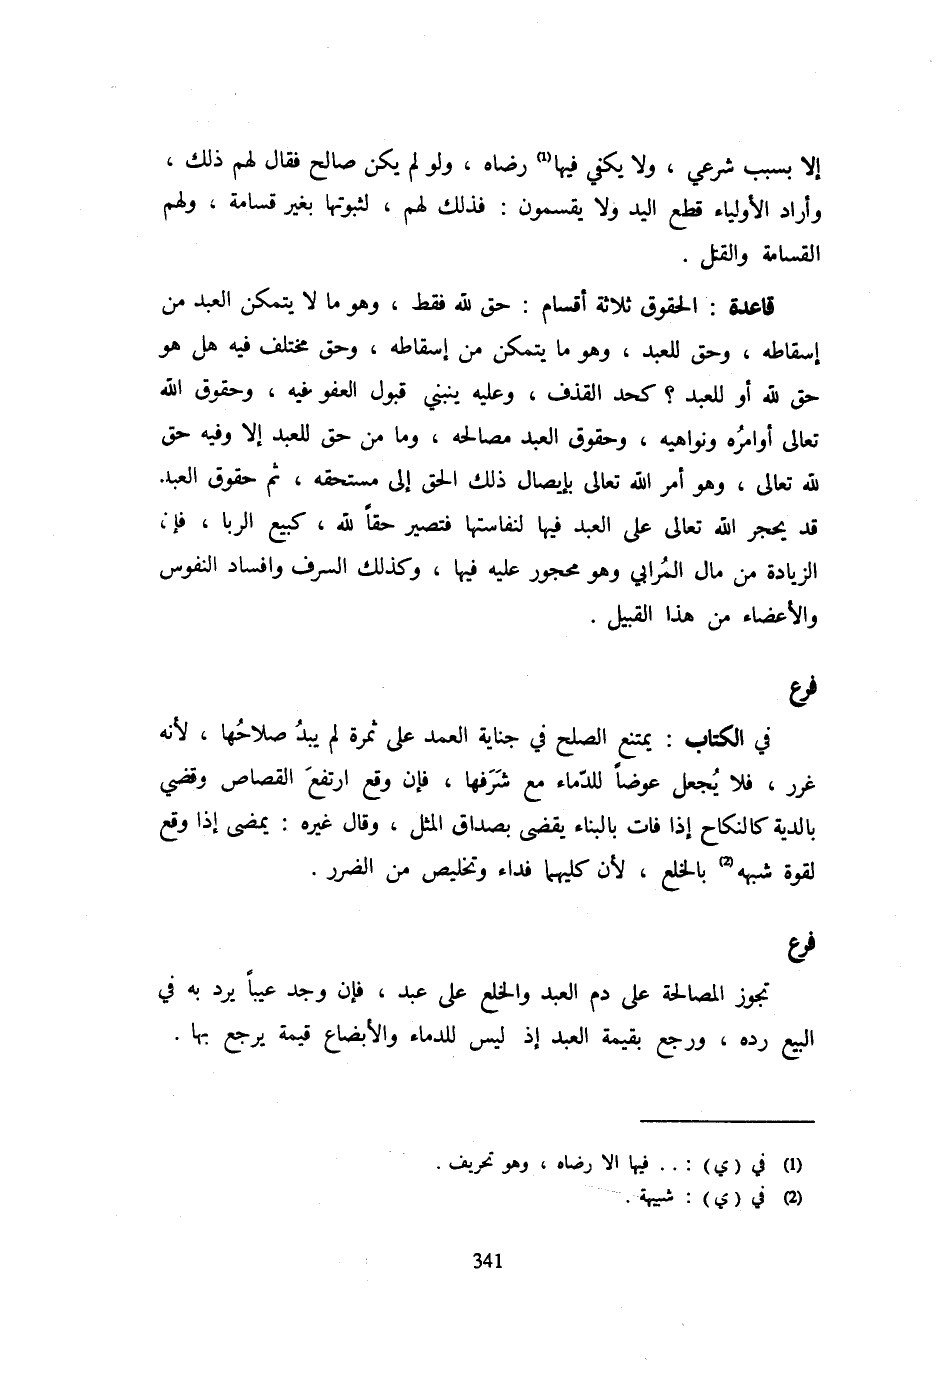 إلا بسبب شرعي ، ولا يكفي فيها(1) رضاه ، ولو لم يكن صالح فقال لهم ذلك ،
وأراد الأولياء قطع اليد ولا يقسمون : فذلك لهم ، لثبوتها بغير قسامة ، ولهم
القسامة والقتل .
قاعدة : الحقوق ثلاثة أقسام : حق لله فقط ، وهو ما لا يتمكن العبد من
إسقاطه ، وحق للعبد ، وهو ما يتمكن من إسقاطه ، وحق مختلف فيه هل هو
حق لله أو للعبد ؟ كحد القذف ، وعليه ينبني قبول العفو فيه ، وحقوق الله
تعالى أوامرُه ونواهيه ، وحقوق العبد مصالحه ، وما من حق للعبد إلا وفيه حق
لله تعالى ، وهو أمر الله تعالى بإيصال ذلك الحق إلى مستحقه ، ثم حقوق العبد
قد يحجر الله تعالى على العبد فيها لنفاستها فتصير حقاً لله ، كبيع الربا ، فإن
الزيادة من مال المُرابي وهو محجور عليه فيها ، وكذلك السرف وافساد النفوس
والأعضاء من هذا القبيل .
فرع
في الكتاب : يمتنع الصلح في جناية العمد على ثمرة لم يبدُ صلاحُها ، لأنه
غرر ، فلا يُجعل عوضاً للدّماء مع شَرَفها ، فإن وقع ارتفعَ القصاص وقضي
بالدية كالنكاح إذا فات بالبناء يقضى بصداق المثل ، وقال غيره : يمضى إذا وقع
لقوة شبهه(2) بالخلع ، لأن كليهما فداء وتخليص من الضرر .
فرع
تجوز المصالحة على دم العبد والخلع على عبد ، فإن وجد عيباً يرد به في
البيع رده ، ورجع بقيمة العبد إذ ليس للدماء والأبضاع قيمة يرجع بها .
(1) في (ي) : .. فيها الا رضاه ، وهو تحريف .
(2) في (ي) : شبيهة .
341